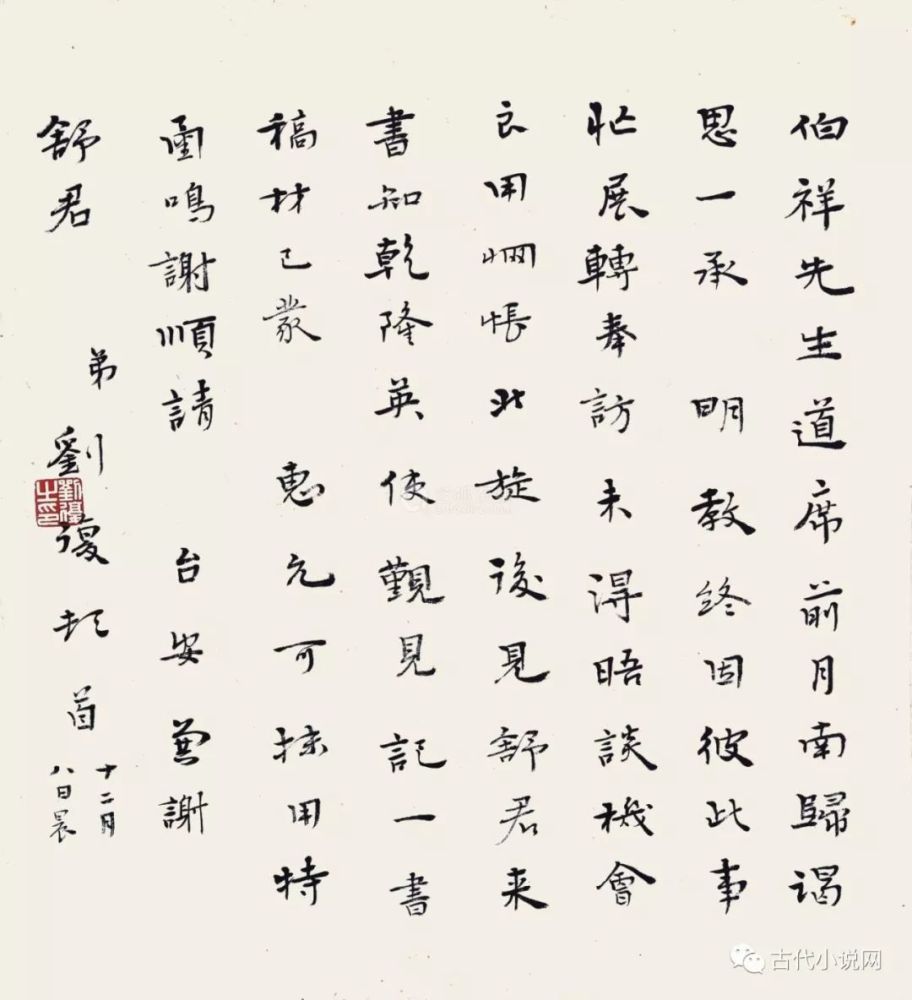 伯祥先生道席前月南歸謁
思一承 明教終因彼此事
忙展轉奉訪未得晤談機會
良用惘悵北旋後見舒君来
書知乾隆英使覲見記一書
稿材已蒙 惠允可採用特
圅鳴謝順請 台安並謝
舒君
弟劉復頓首
十二月
八日晨
劉復之印
古代小说网